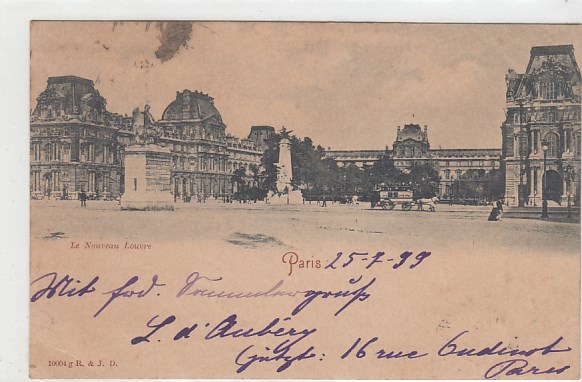 Le Nouveau Louvre
Paris 25-7-99
Mit frd. Sammlergruß
L. d'Aubéry
(jetzt: 16 rue Oudinot
Paris
10004 g R. & J. D.